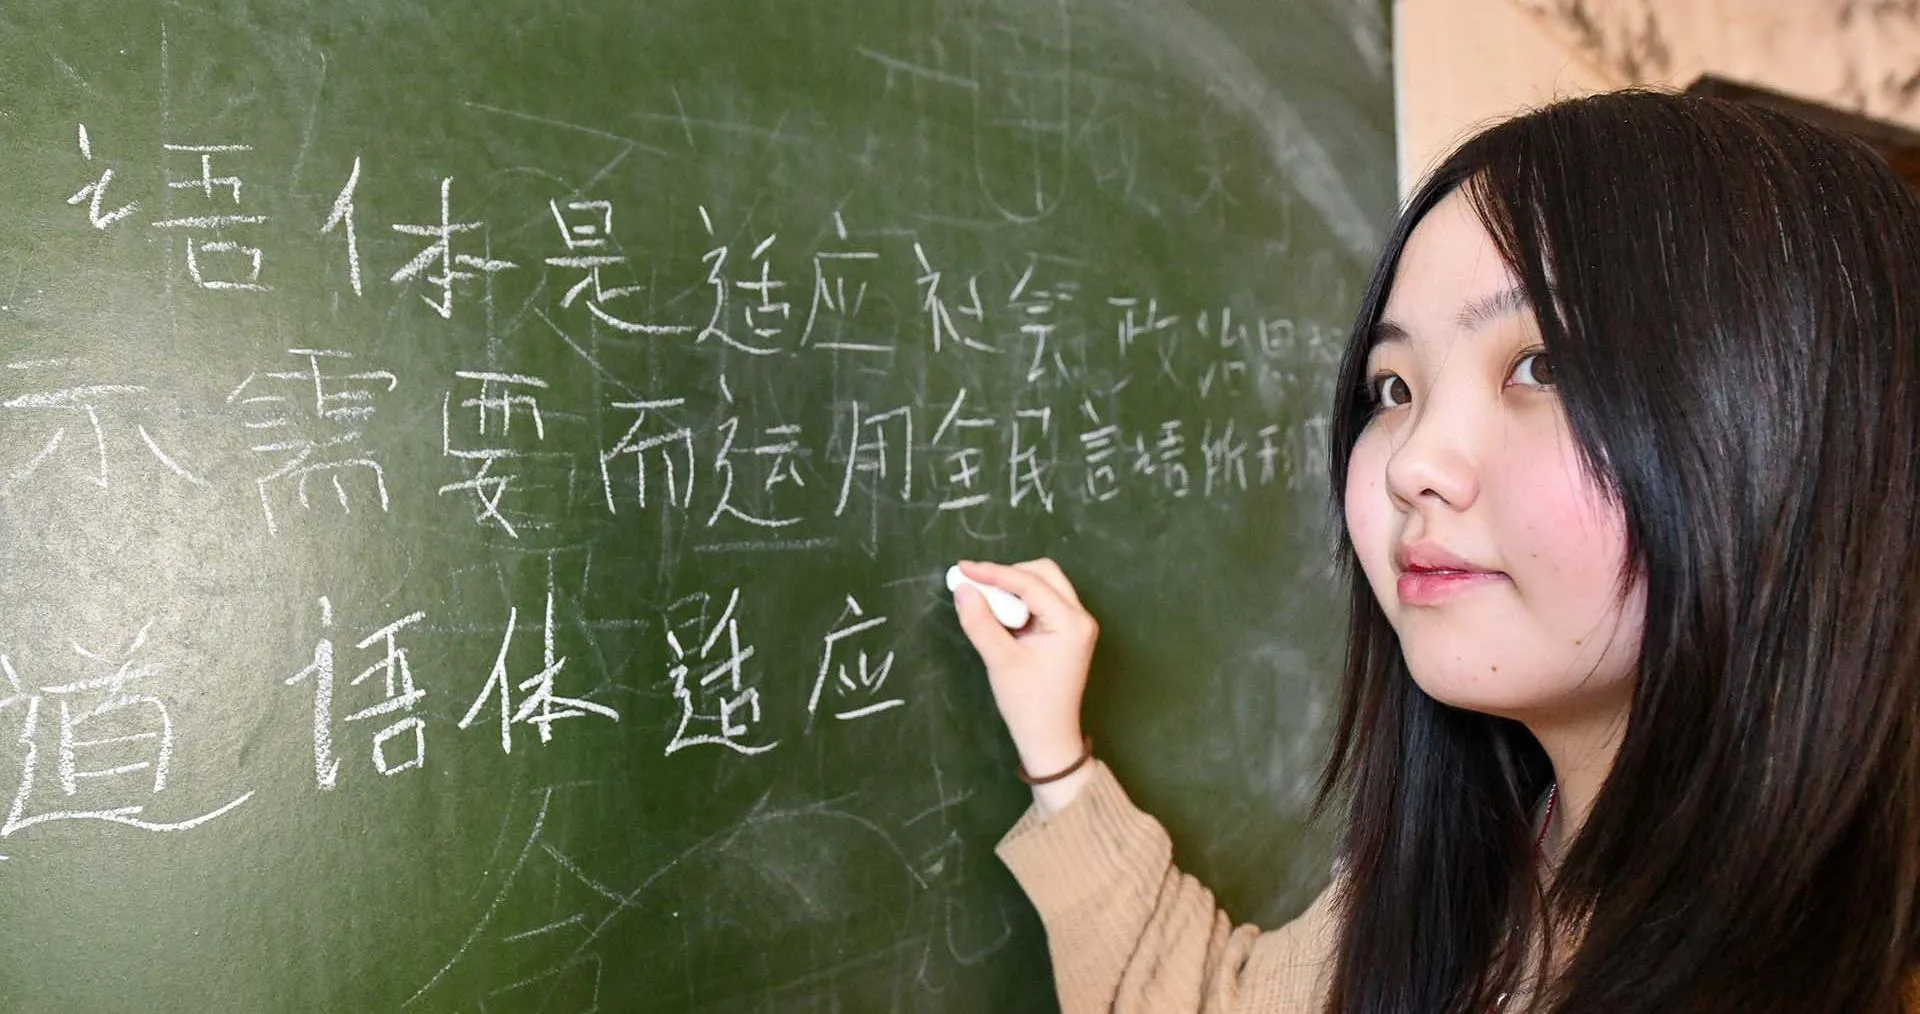 语体是适应社会政治思想
示需要而运用全民言语所
道语体适应